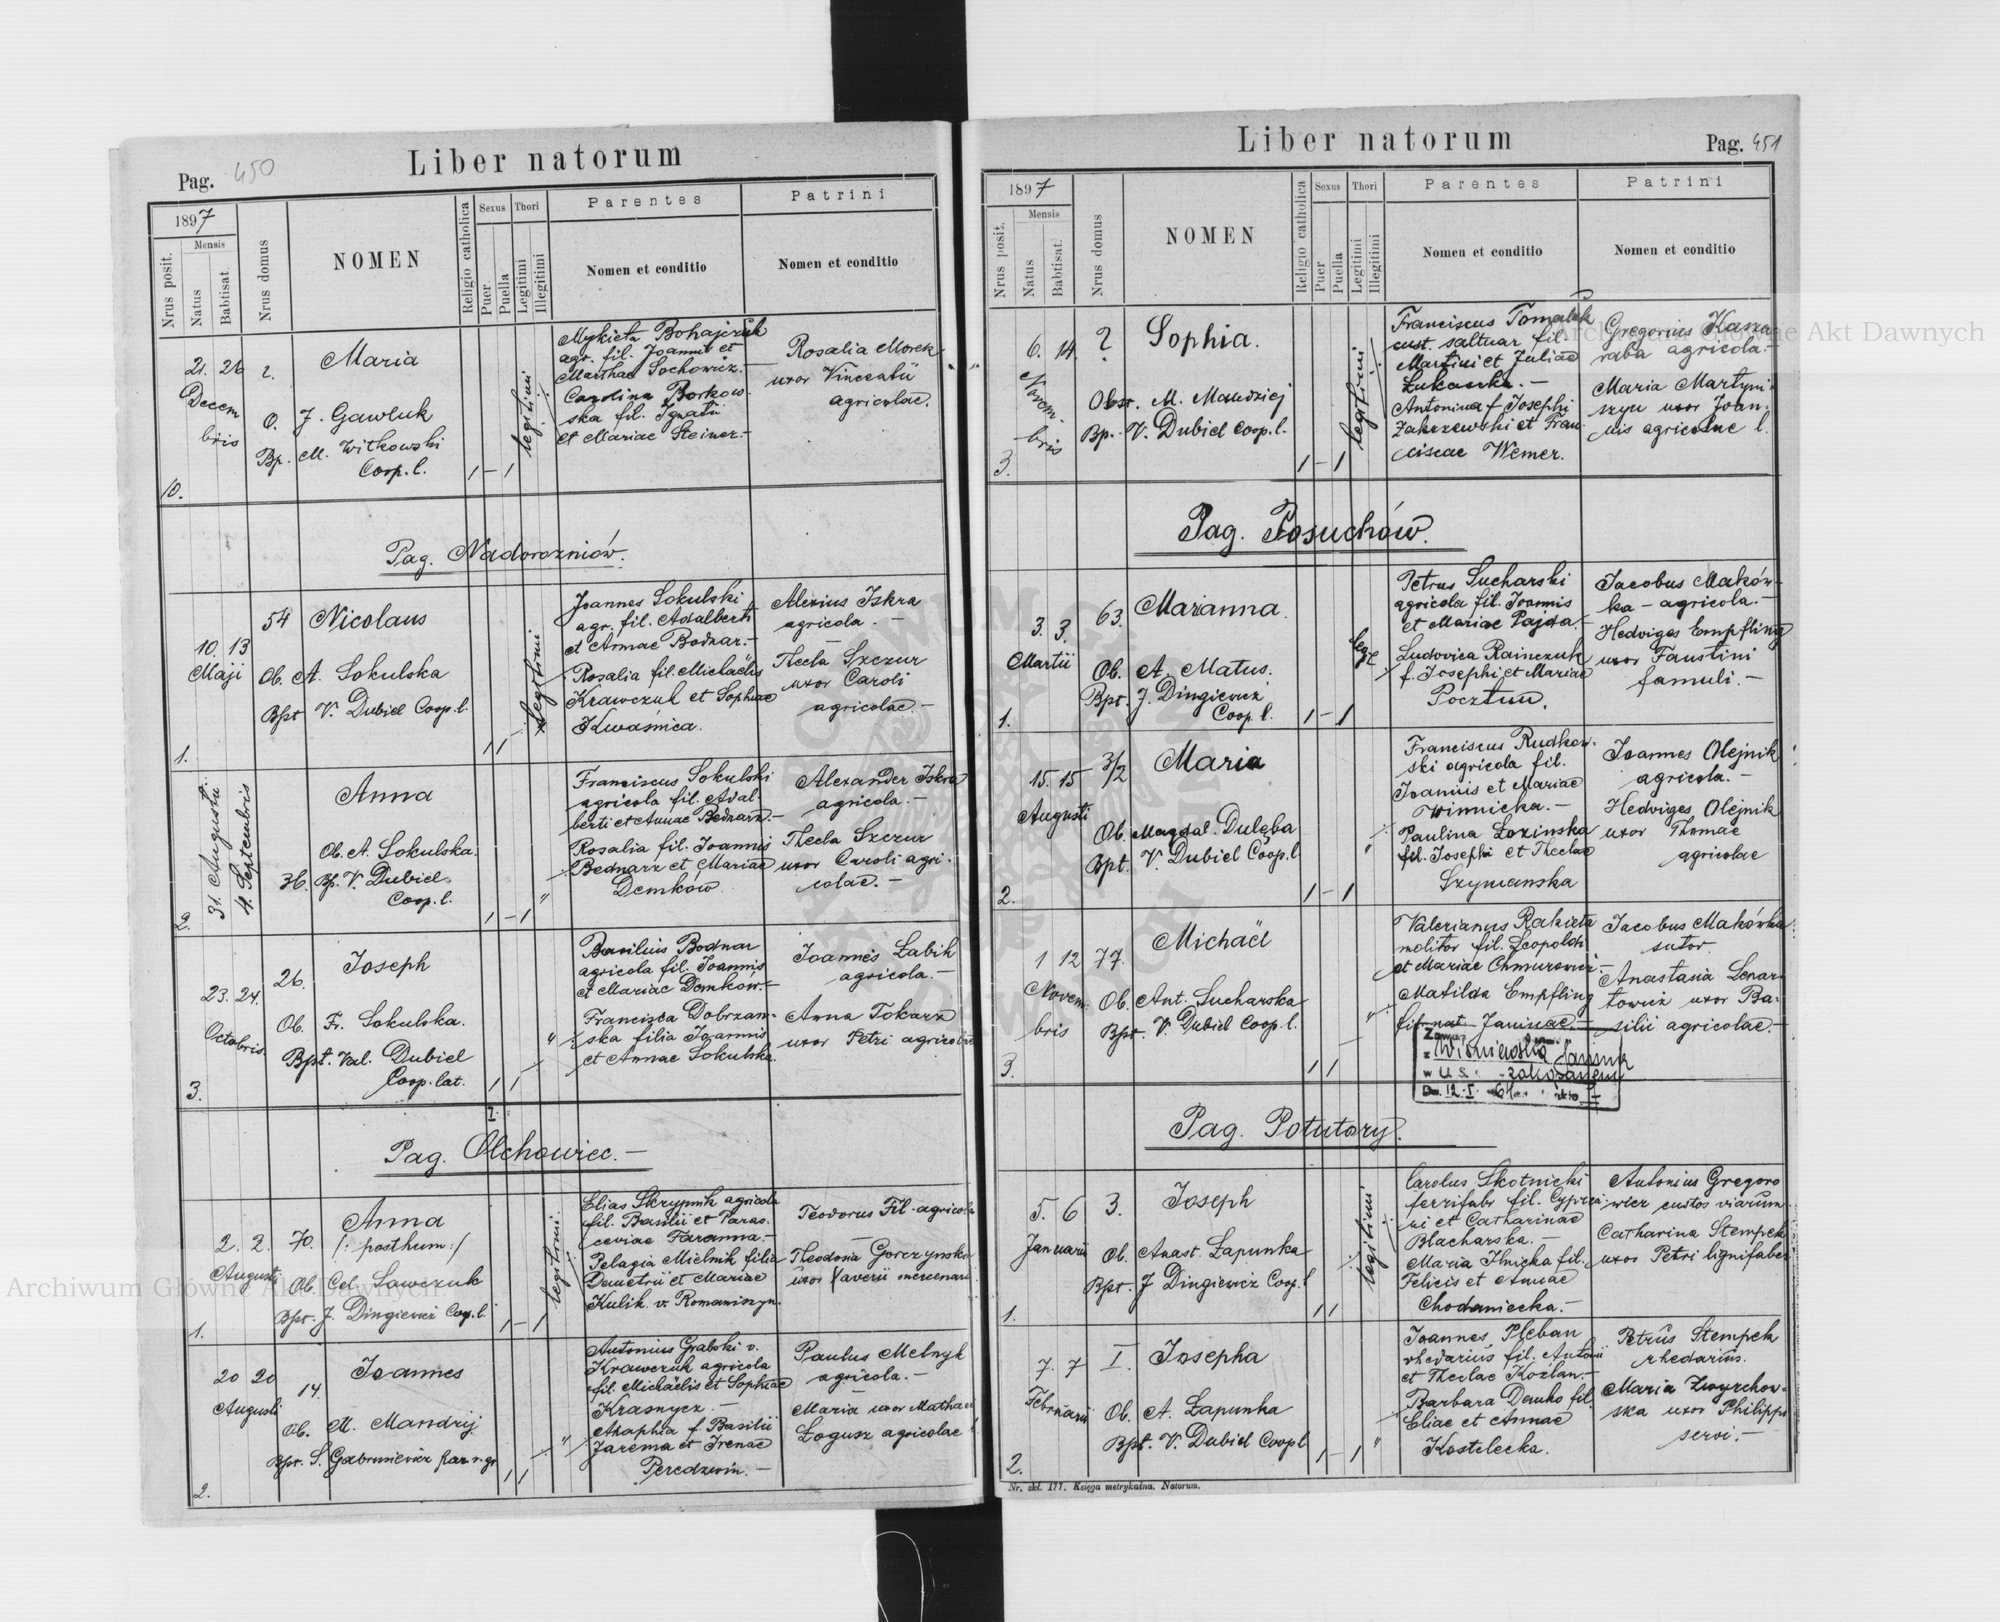 Pag. 450
Liber natorum
1897
Nrus posit.
Mensis
Natus
Babtisat.
Nrus domus
NOMEN
Religio catholica
Sexus
Puer
Puella
Thori
Legitimi
Illegitimi
Parentes
Nomen et conditio
Patrini
Nomen et conditio
10.
21. 26
Decem
bris
2.
Maria
O. J. Gawluk
Bp. M. Witkowski
Coop. l.
1 - 1
legitimi
Mykieta Bohajczuk
agr. fil. Joannis et
Marthae Sochowicz.-
Carolina Borkow-
ska fil. Ignatii
et Mariae Steiner.-
Rosalia Morek
uxor Vincentii
agricolae.
Pag. Nadorozniów.
1.
10. 13
Maji
54
Nicolaus
Ob. A. Sokulska
Bpt V. Dubiel Coop. l.
1 1
legitimi
Joannes Sokulski
agr. fil. Adalberti
et Annae Bodnar.-
Rosalia fil. Michaëlis
Krawczuk et Sophiae
Kwaśnica.
Alexius Iskra
agricola.-
Thecla Szczur
uxor Caroli
agricolae.-
2.
31. Augusti
4. Septembris
36.
Anna
Ob. A. Sokulska.
Bp. V. Dubiel
Coop. l.
1 - 1
"
Franciscus Sokulski
agricola fil. Adal-
berti et Annae Bednarz.-
Rosalia fil. Joannis
Bednarz et Mariae
Demków
Alexander Iskra
agricola.-
Thecla Szczur
uxor Caroli agri-
colae.-
3.
23. 24.
Octobris.
26.
Joseph
Ob. Fr. Sokulska.
Bpt. Val. Dubiel
Coop. lat.
1 1
"
Basilius Bodnar
agricola fil. Joannis
et Mariae Demków.-
Francisca Dobrzan-
ska filia Joannis
et Annae Sokulska.
Joannes Labik
agricola.-
Anna Tokarz
uxor Petri agricolae
Pag. Olchowiec.-
1.
2. 2.
Augusti
70.
Anna
/: posthum :/
Ob. Cel. Sawczuk
Bpt. J. Dingiewicz Coop. l.
1 - 1
legitimi
Elias Skrypnik agricola
fil. Basilii et Paras-
ceviae Faranna.-
Pelagia Mielnik filia
Demetrii et Mariae
Kulik v. Romaniszyn.
Teodorus Fil - agricola
Theodosia Gorczynska
uxor Xaverii mercenarii
2.
20 20
Augusti
14.
Joannes
Ob. M. Mandzij
Bpt. S. Gabrusiewicz par. r. gr.
1 1
"
Antonius Grabski v.
Krawczuk agricola
fil. Michaëlis et Sophiae
Krasnycz.-
Ahaphia f. Basilii
Jarema et Irenae
Peredzwin.-
Paulus Melnyk
agricola.-
Maria uxor Mathaei
Łogusz agricolae
Liber natorum
Pag. 451
1897
Nrus posit.
Mensis
Natus
Babtisat.
Nrus domus
NOMEN
Religio catholica
Sexus
Puer
Puella
Thori
Legitimi
Illegitimi
Parentes
Nomen et conditio
Patrini
Nomen et conditio
3.
6. 14.
Novem-
bris
2
Sophia.
Obst. M. Mandziej
Bp. V. Dubiel Coop. l.
1 - 1
legitimi
Franciscus Tomaluk
cust. saltuar fil.
Martini et Juliae
Łukaszka.-
Antonina f. Josephi
Zakrzewski et Fran-
ciscae Werner.
Gregorius Kasza
raba agricola.-
Maria Martyni-
szyn uxor Joan-
nis agricolae l.
Pag. Posuchów.
1.
3. 3.
Martii
63.
Marianna.
Ob. A. Matus.
Bpt. J. Dingiewicz
Coop. l.
1 - 1
Petrus Sucharski
agricola fil. Joannis
et Mariae Pajda.-
Ludovica Rainczuk
f. Josephi et Mariae
Pocztun.
Jacobus Maków-
ka - agricola.-
Hedviges Empfling
uxor Faustini
famuli.-
2.
15. 15
Augusti
3/2
Maria
Ob. Magdal. Dulęba
Bpt. V. Dubiel Coop. l.
1 - 1
"
Franciscus Rudkow-
ski agricola fil.
Joannis et Mariae
Winnicka.-
Paulina Łozinska
fil. Josephi et Theclae
Szymanska
Joannes Olejnik
agricola.-
Hedviges Olejnik
uxor Thomae
agricolae
3.
1 12
Novem-
bris
77.
Michaël
Ob. Ant. Sucharska
Bpt. V. Dubiel Coop. l.
1 1
"
Valerianus Rakieta
molitor fil. Leopoldi
et Mariae Chmurowicz.-
Matilda Empfling
fil. nat. Janinae.-
Jacobus Makówka
sutor
Anastasia Lenar-
towicz uxor Ba-
silii agricolae.-
Pag. Potutory.
1.
5. 6
Januarii
3.
Joseph
Ob. Anast. Łapunka
Bpt. J Dingiewicz Coop. l
1 1
legitimi
Carolus Skotnicki
ferrifabr fil. Cypria-
ni et Catharinae
Blacharska.-
Maria Ilnicka fil.
Felicis et Annae
Chodaniecka.-
Antonius Gregoro
wicz custos viarum.
Catharina Stempek
uxor Petri lignifaber
2.
7. 7
Februarii
I.
Josepha
Ob. A. Łapunka
Bpt. V. Dubiel Coop l
1 - 1
"
Joannes Pleban
rhedarius fil. Antonii
et Theclae Kozłan.-
Barbara Demko fil.
Eliae et Annae
Kostelecka.
Petrus Stempek
rhedarius.
Maria Zwyrchow-
ska uxor Philippi
servi.-
Nr. akt. 177. Księga metrykalna. Natorum.
Archiwum Główne Akt Dawnych
Archiwum Główne Akt Dawnych